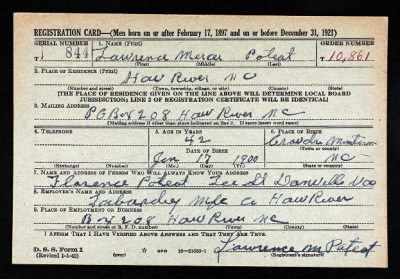 REGISTRATION CARD—(Men born on or after February 17, 1897 and on or before December 31, 1921)
SERIAL NUMBER 1. NAME (Print) ORDER NUMBER
T 844 Lawrence Mercer Poteat T 10,861
(First) (Middle) (Last)
2. PLACE OF RESIDENCE (Print)
Haw River NC
(Number and street) (Town, township, village, or city) (County) (State)
[THE PLACE OF RESIDENCE GIVEN ON THE LINE ABOVE WILL DETERMINE LOCAL BOARD
JURISDICTION; LINE 2 OF REGISTRATION CERTIFICATE WILL BE IDENTICAL]
3. MAILING ADDRESS
P O Box 208 Haw River NC
(Mailing address if other than place indicated on line 2. If same insert word same)
4. TELEPHONE 5. AGE IN YEARS 6. PLACE OF BIRTH
42
DATE OF BIRTH (Town or county)
Jan 17 1900 NC
(Exchange) (Number) (Mo.) (Day) (Yr.) (State or country)
7. NAME AND ADDRESS OF PERSON WHO WILL ALWAYS KNOW YOUR ADDRESS
Florence Poteat Lee St Danville Va
8. EMPLOYER'S NAME AND ADDRESS
Mfg Co Haw River
9. PLACE OF EMPLOYMENT OR BUSINESS
Box 208 Haw River NC
(Number and street or R. F. D. number) (Town) (County) (State)
I AFFIRM THAT I HAVE VERIFIED ABOVE ANSWERS AND THAT THEY ARE TRUE.
D. S. S. Form 1
(Revised 1-1-42) GPO 16—21630-1 Lawrence M Poteat
(Registrant's signature)